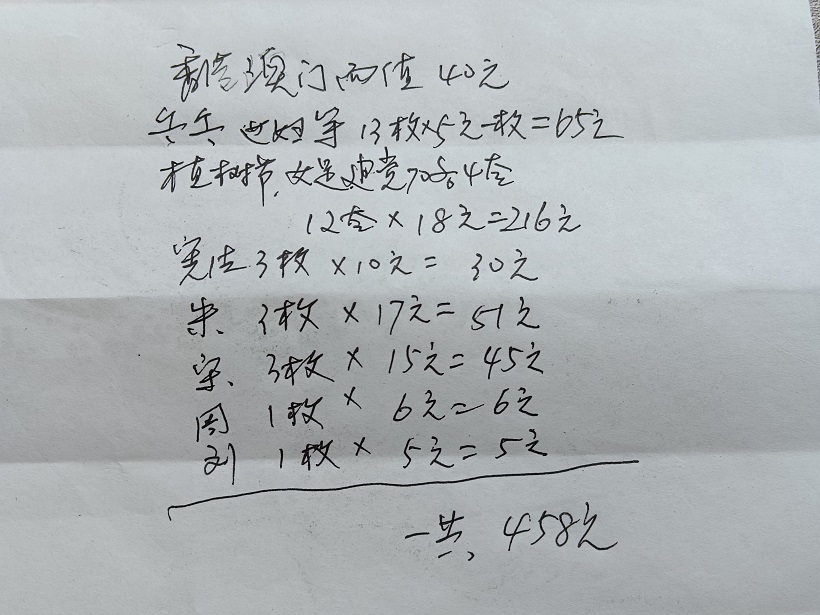 香港澳门面值 40元
乒乓 世妇等 13枚×5元一枚=65元
植树节.女足.建党70各4套
12套×18元=216元
宪法 3枚×10元= 30元
朱. 3枚×17元=51元
宋. 3枚×15元=45元
周 1枚× 6元=6元
刘 1枚× 5元=5元
一共、458元